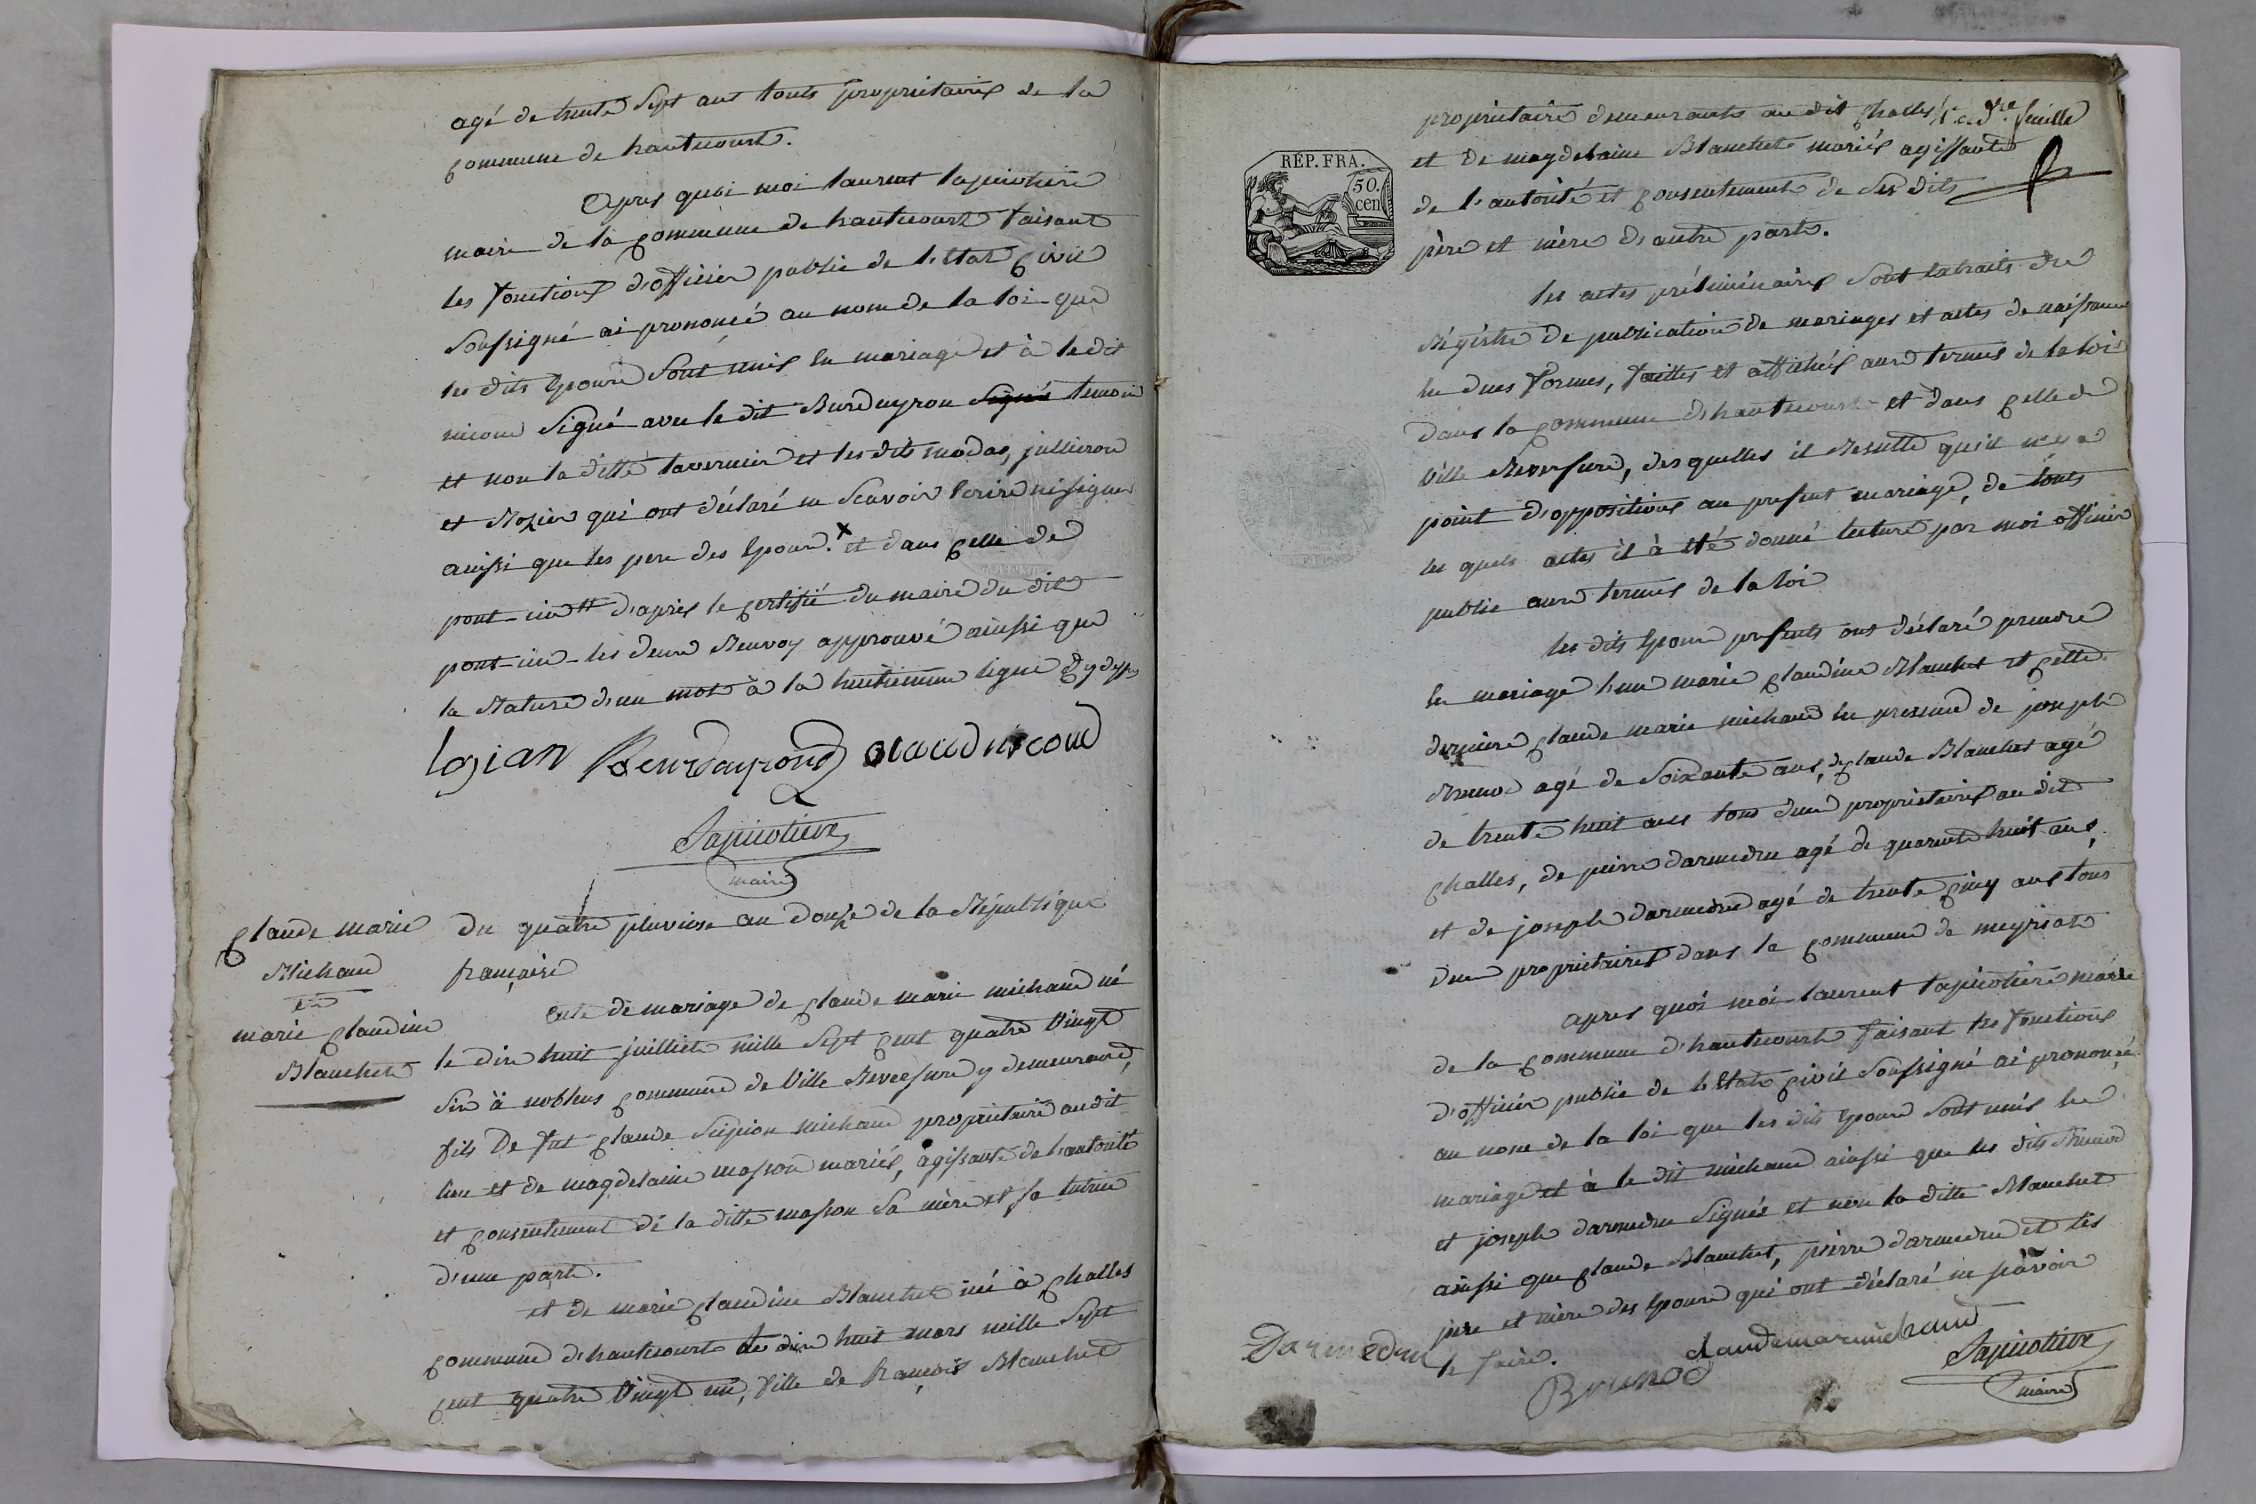 agé de trente Sept ans touts propriétaires de la
commune de hautecourt.
Après quoi moi laurent tapicotiere
maire de la commune de hautecourt faisant
les fonctions d'officier public de l'état civil
Soussigné ai prononcé au nom de la loi que
les dits Epoux Sont unis en mariage et à le dit
nicoud Signé avec le dit Burdeyron Signé temoin
et non la ditte tavernier et les dits modas, jullieron
et Rozier qui ont déclaré ne Scavoir Ecrire ni signer
ainsi que les pere des Epoux. x et dans celle de
pont-in d'après le certifié du maire du dit
pont-in - les deux Renvoy approuvé ainsi que
la Rature d'un mot à la huitiemme ligne
lozian Beurdayrond claud nicoud
Tapicotiere
maire
Claude marie
Michaud
et
marie Claudine
Blanchet
Du quatre pluviose an douze de la République
française
acte de mariage de Claude marie michaud né
le dix huit juilliet mille Sept Cent quatre Vingt
Six à noblens Commune de Ville Reversure y demeurand,
fils De fut Claude Scipion michaud propriétaire audit
lieu et de magdelaine masson mariés, agissant de l'autorité
et consentement de la ditte masson Sa mère et sa tutrice
d'une part.
et de marie Claudine Blanchet née à Challes
Commune d'hautecourt le dix huit mars mille Sept
Cent quatre Vingt un, fille de françois Blanchet
RÉP. FRA.
50.
cen
propriétaire demeurants au dit Challes feuille
et De magdelaine Blanchet mariés agissante
de l'autorité et Consentement de Ses dits
père et mère d'autre part.
les actes préliminaires Sont Extraits du
Régistre de publication de mariages et actes de naissance
en dues formes, faittes et affichés aux termes de la loi
dans la Commune d'hautecourt et dans Celle de
Ville Reversure, des quelles il Résulte qu'il n'y a
point d'oppositions au présent mariage, de touts
les quels actes il à été donné lecture par moi officier
public aux termes de la loi
les dits Epoux présents ont déclaré prendre
en mariage l'un marie Claudine Blanchet et Cette
dernière Claude marie michaud en présence de joseph
Brunod agé de Soixante ans, de Claude Blanchet agé
de trente huit ans tous deux propriétaires au dit
Challes, de pierre darmedru agé de quarente huit ans,
et de joseph darmedru agé de trente Cinq ans tous
deux propriétaires dans la Commune de meyriat
apres quoi moi laurent tapicotiere maire
de la Commune d'hautecourt faisant les fonctions
d'officier public de l'Etat Civil Soussigné ai prononcé
au nom de la loi que les dits Epoux Sont unis en
mariage et à le dit michaud ainsi que les dits Brunod
et joseph darmedru Signés et non la ditte Blanchet
ainsi que Claude Blanchet, pierre darmedru et les
père et mère des Epoux qui ont déclaré ne sçavoir
le faire.
Darmedru
claudemarimichaud
Brunod
Tapicotiere
maire